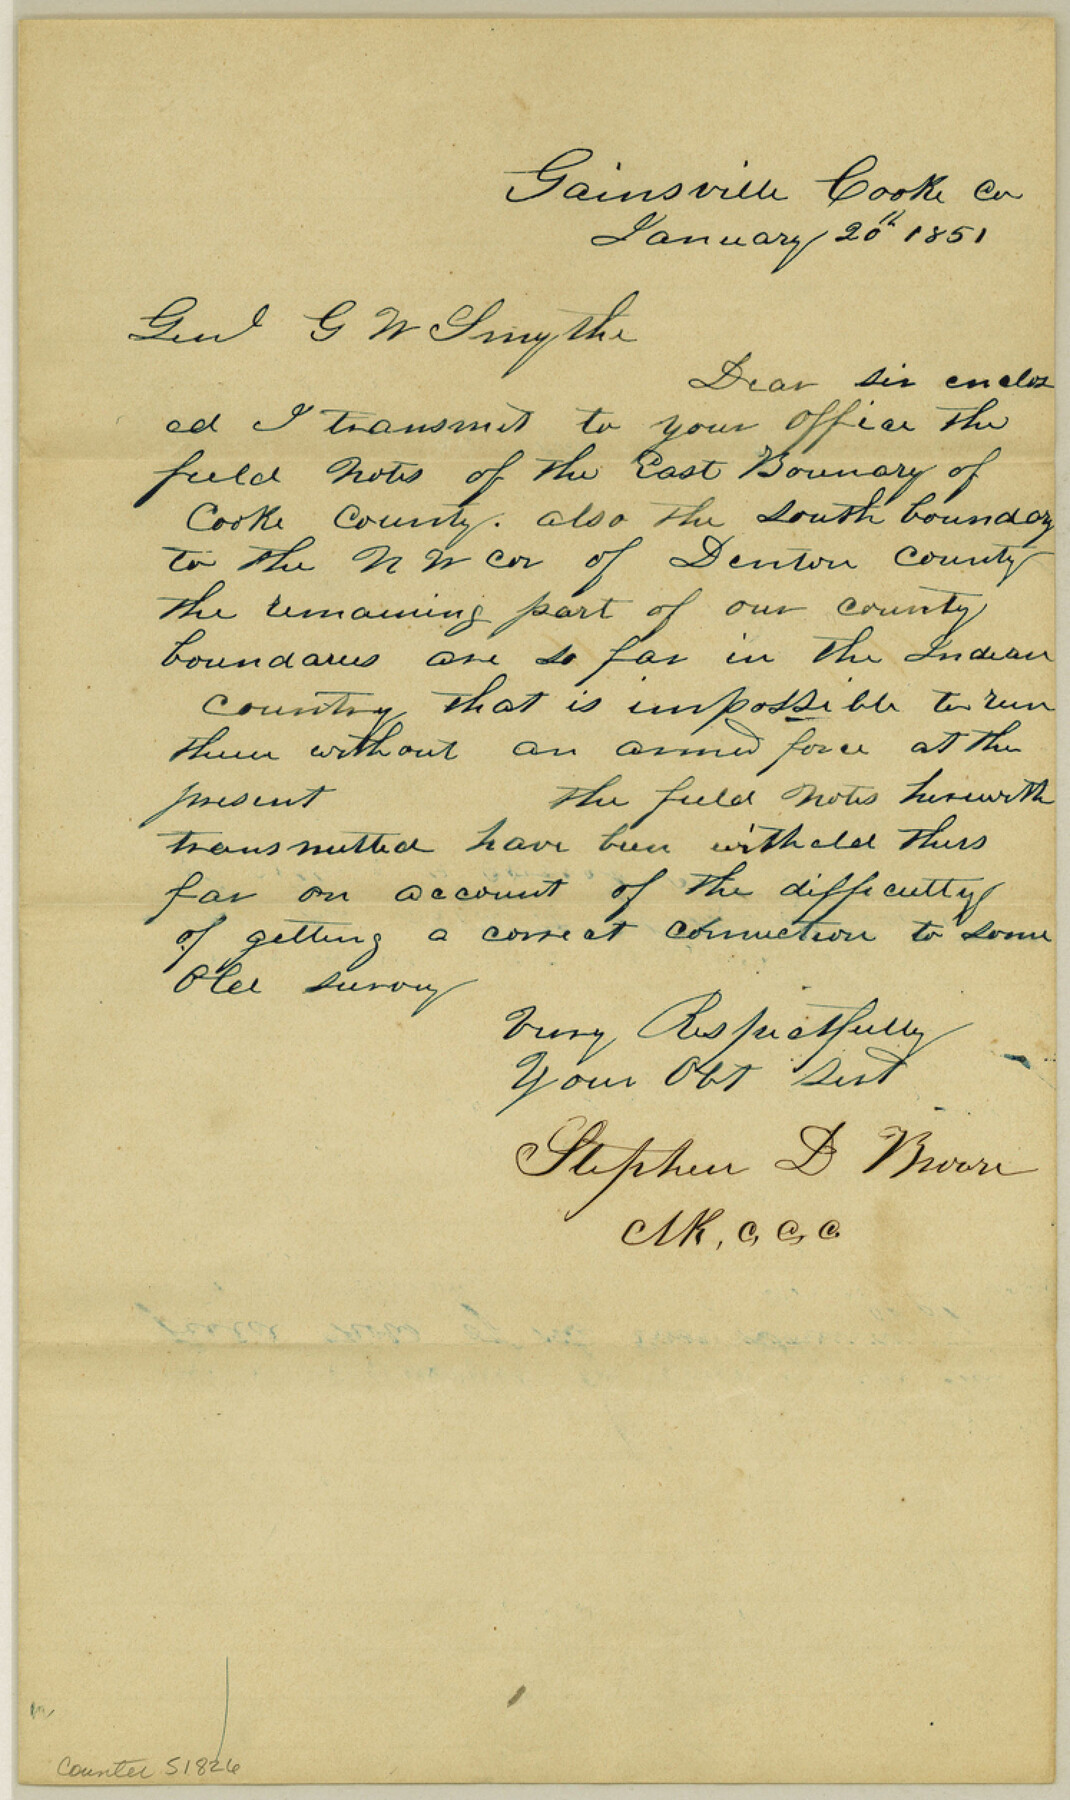 Gainsville Cooke Co
January 20th 1851
Genl G W Smythe
Dear sir enclos
ed I transmit to your Office the
field Notes of the East Bounary of
Cooke County. also the south bounday
to the N W cor of Denton County
the remaining part of our county
boundaries are so far in the Indian
country that is impossible to run
them without an armed force at the
present the field Notes herewith
transmitted have been witheld thus
far on account of the difficulty
of getting a correct connection to some
Old survey
Very Respectfully
Your Obt Sert
Stephen D Broore
Clk, C, C, C
Counter 51826